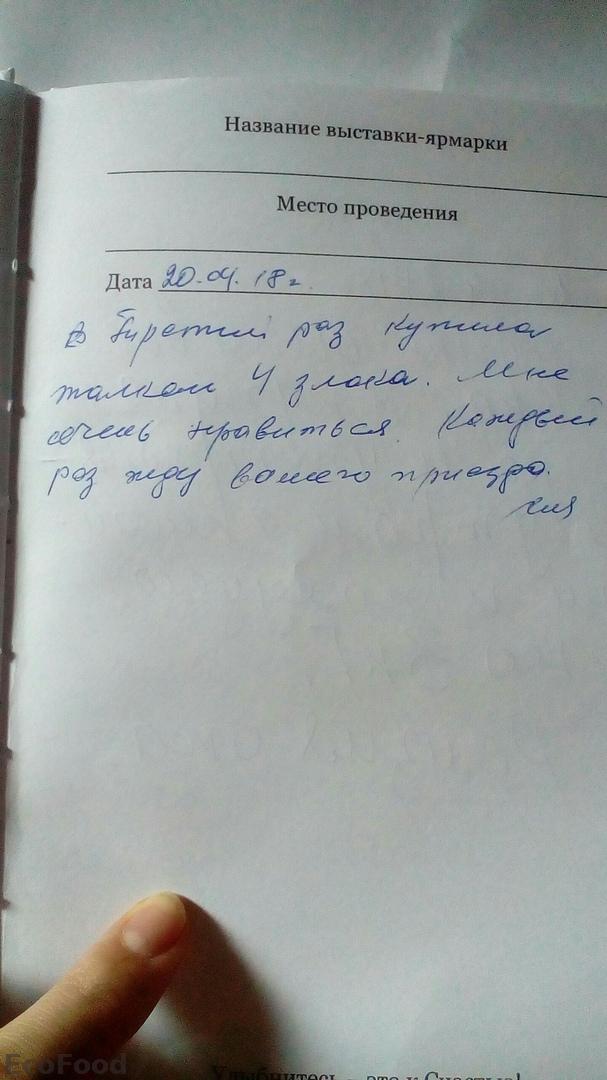 Название выставки-ярмарки
Место проведения
Дата 20.04.18г.
В третий раз купила
толкан 4 злака. Мне
очень нравиться. Каждый
раз жду вашего приезда.
EcoFood
Улыбнитесь - это к Счастью!